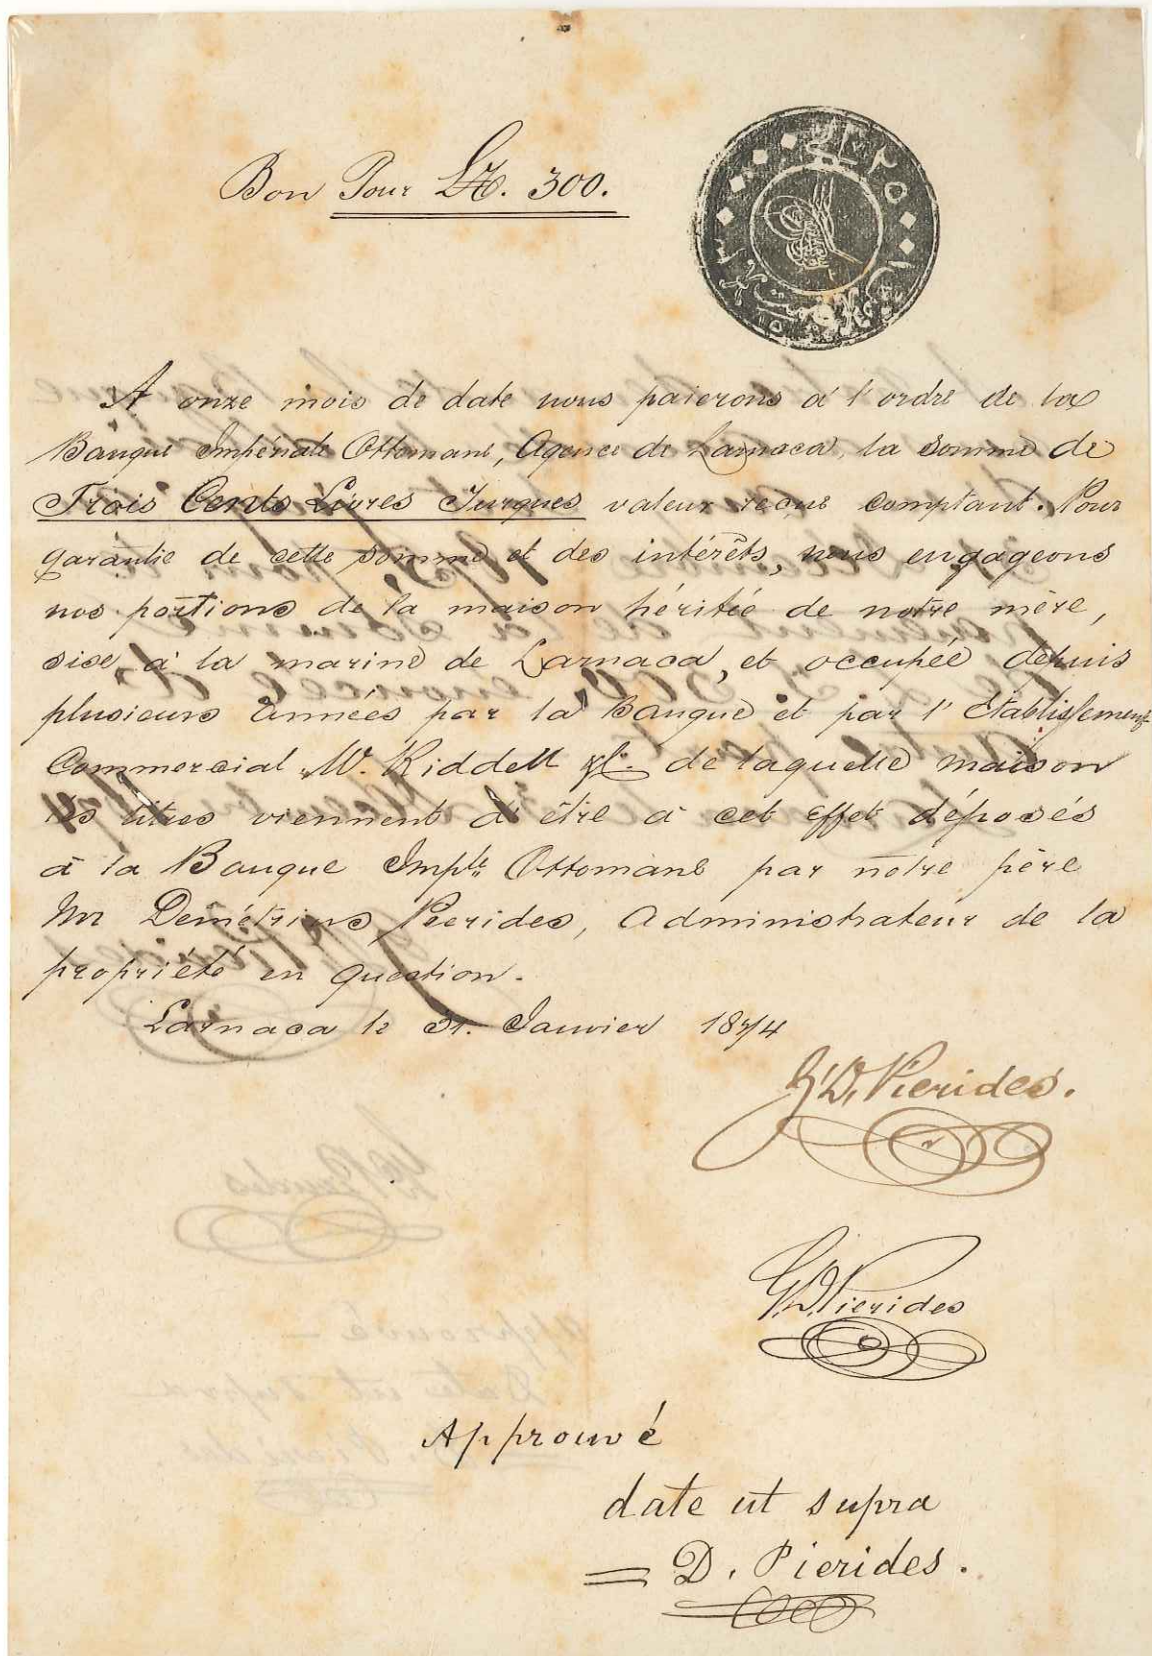 Bon Pour L.T. 300.
A onze mois de date nous paierons à l'ordre de la
Banque Impériale Ottomane, Agence de Larnaca, la somme de
Trois Cents Livres Turques valeur reçue comptant. Pour
garantie de cette somme et des intérêts, nous engageons
nos portions de la maison héritée de notre mère,
sise à la marine de Larnaca, et occupée depuis
plusieurs années par la Banque et par l'Etablissement
Commercial W. Riddell & C. de laquelle maison
les titres viennent d'être à cet effet déposés
à la Banque Imple Ottomane par notre père
Mr Demétrius Pierides, Administrateur de la
propriété en question.
Larnaca le 31. Janvier 1874
Z. D. Pierides.
G. D. Pierides
Approuvé
date ut supra
D. Pierides.